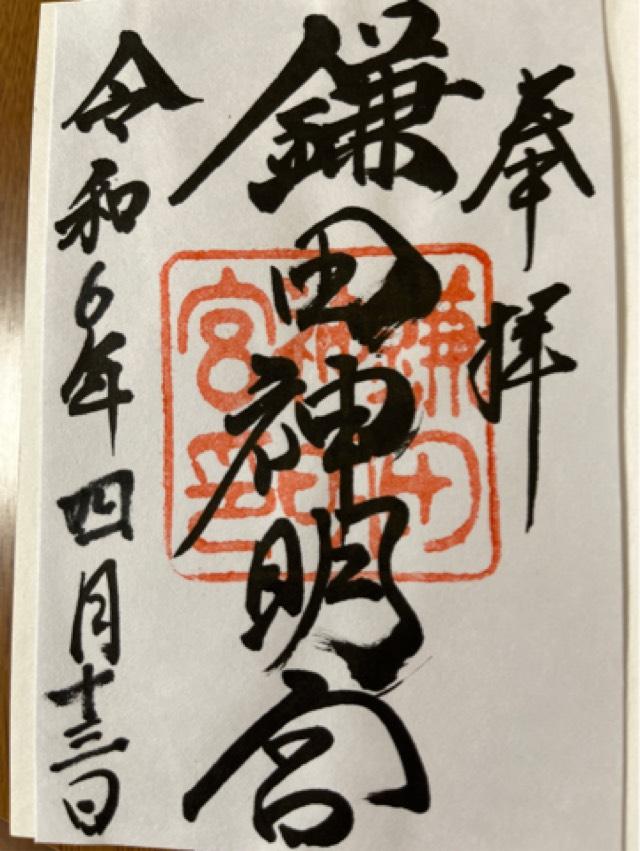 奉拝
鎌田神明宮
令和6年四月十三日
鎌田
神明
宮印